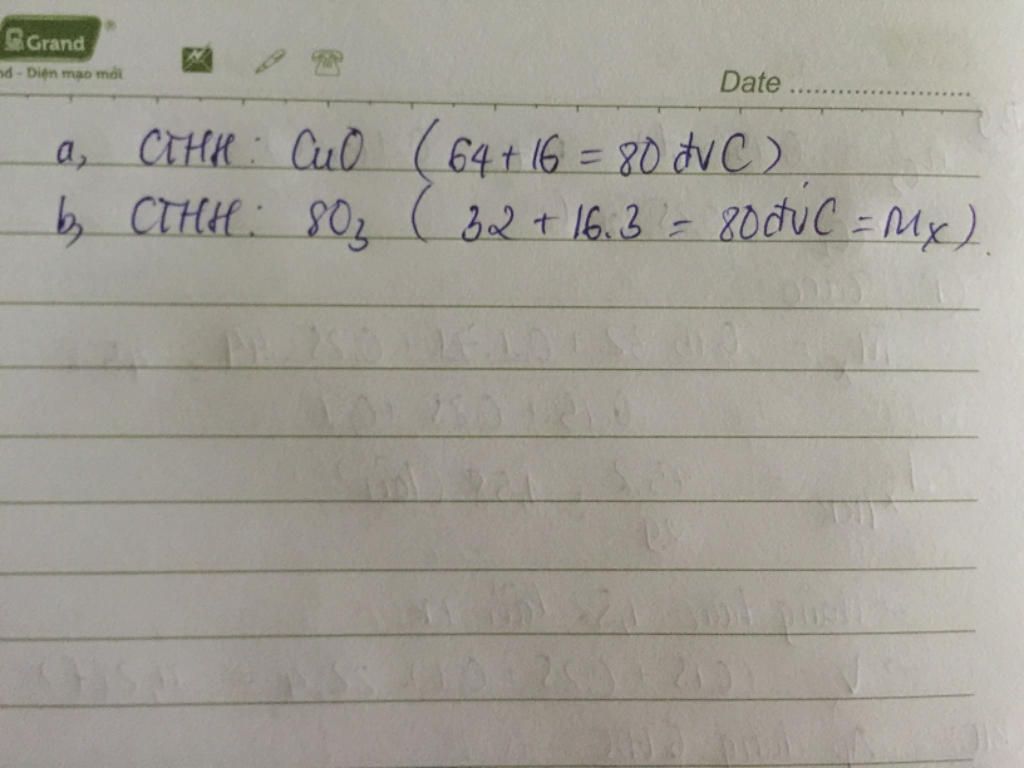 Grand
nd - Diện mạo mới
Date
a, CTHH: CuO (64 + 16 = 80 đvC)
b, CTHH: SO3 (32 + 16.3 = 80 đvC = Mx)